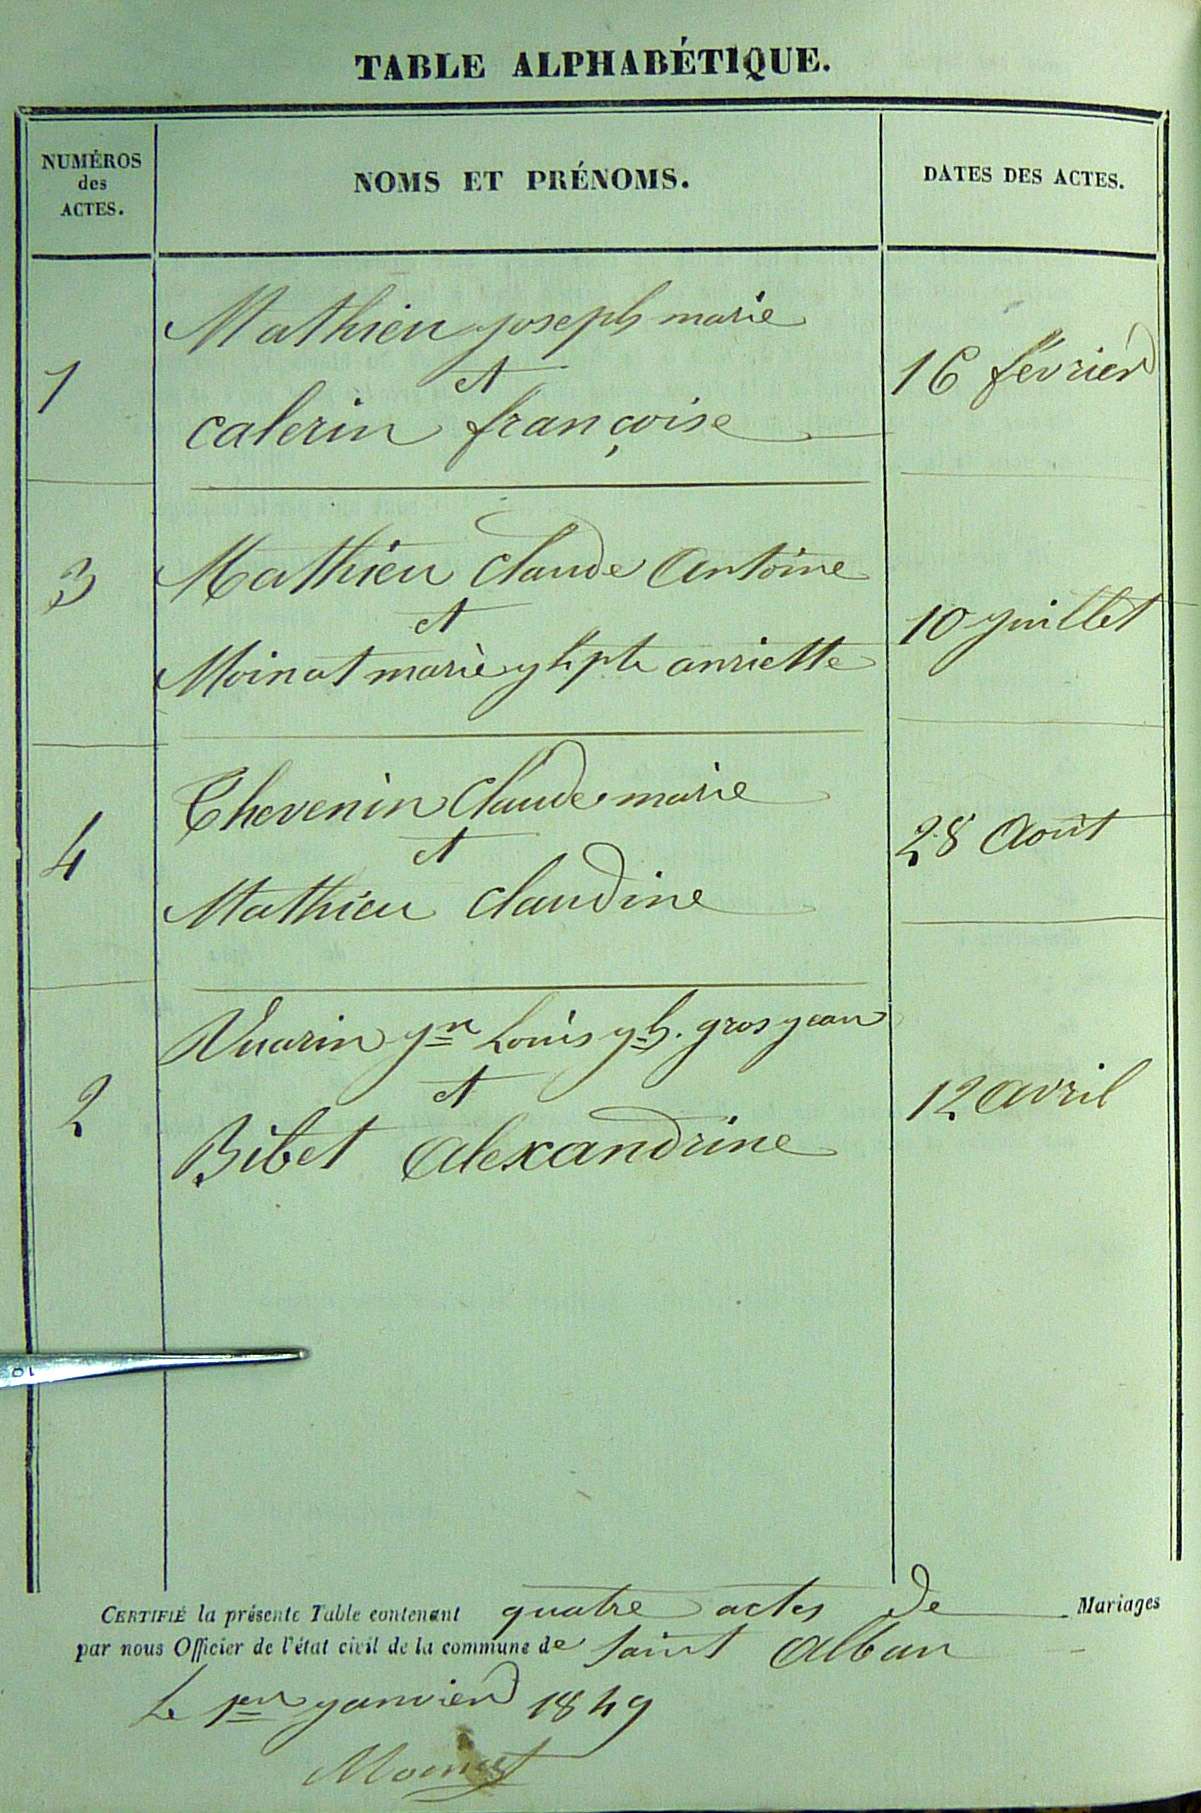 TABLE ALPHABÉTIQUE.
NUMÉROS
des
ACTES.
NOMS ET PRÉNOMS.
DATES DES ACTES.
Mathieu joseph marie
1
et
16 février
calerin françoise
3
Mathieu Claude Antoine
et
10 juillet
Moinat marie
anriette
Thevenin Claude marie
4
et
28 Aout
Mathieu Claudine
Vuarin jn Louis jh. gros jean
2
et
12 avril
Bibet Alexandrine
CERTIFIÉ la présente Table contenant quatre actes de Mariages
par nous Officier de l'état civil de la commune de saint Alban
Le 1er janvier 1849
Moinat